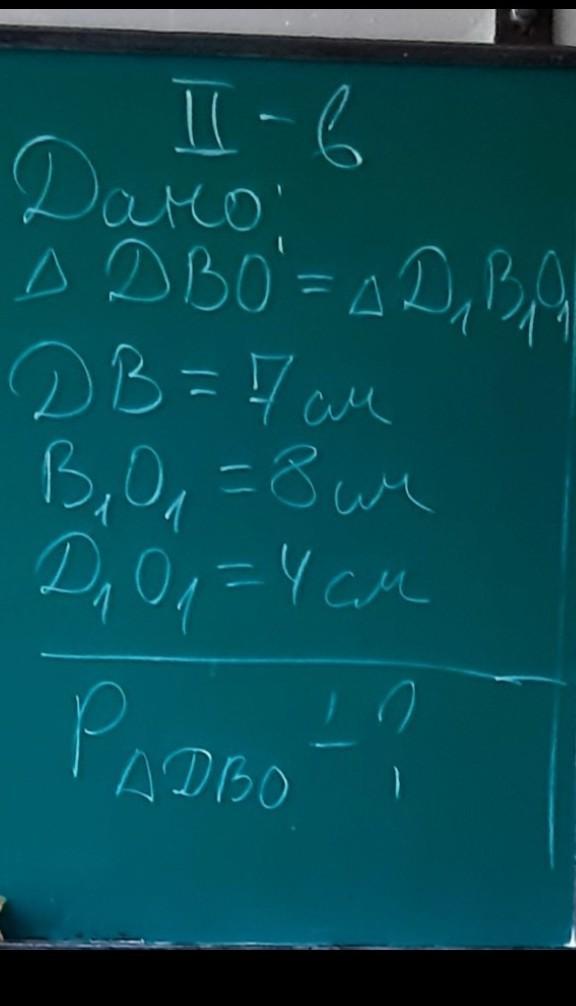 II - в
Дано:
△ DBO = △ D₁B₁O₁
DB = 7 см
B₁O₁ = 8 см
D₁O₁ = 4 см
P△DBO - ?